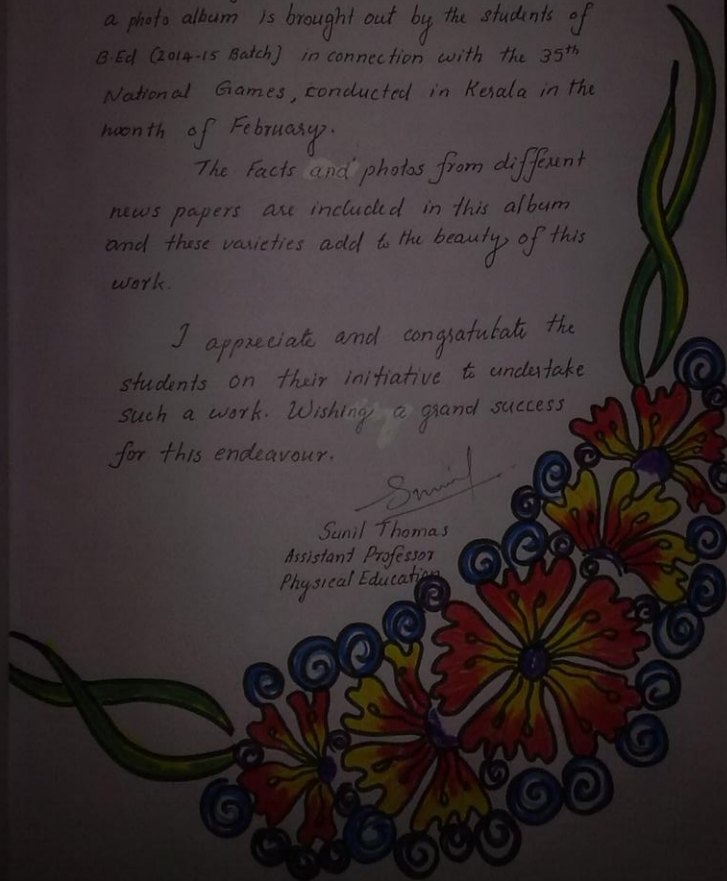 a photo album is brought out by the students of
B.Ed (2014-15 Batch) in connection with the 35th
National Games, conducted in Kerala in the
month of February.
The Facts and photos from different
news papers are included in this album
and these varieties add to the beauty of this
work.
I appreciate and congratulate the
students on their initiative to undertake
such a work. Wishing a grand success
for this endeavour.
Sunil
Sunil Thomas
Assistant Professor
Physical Education